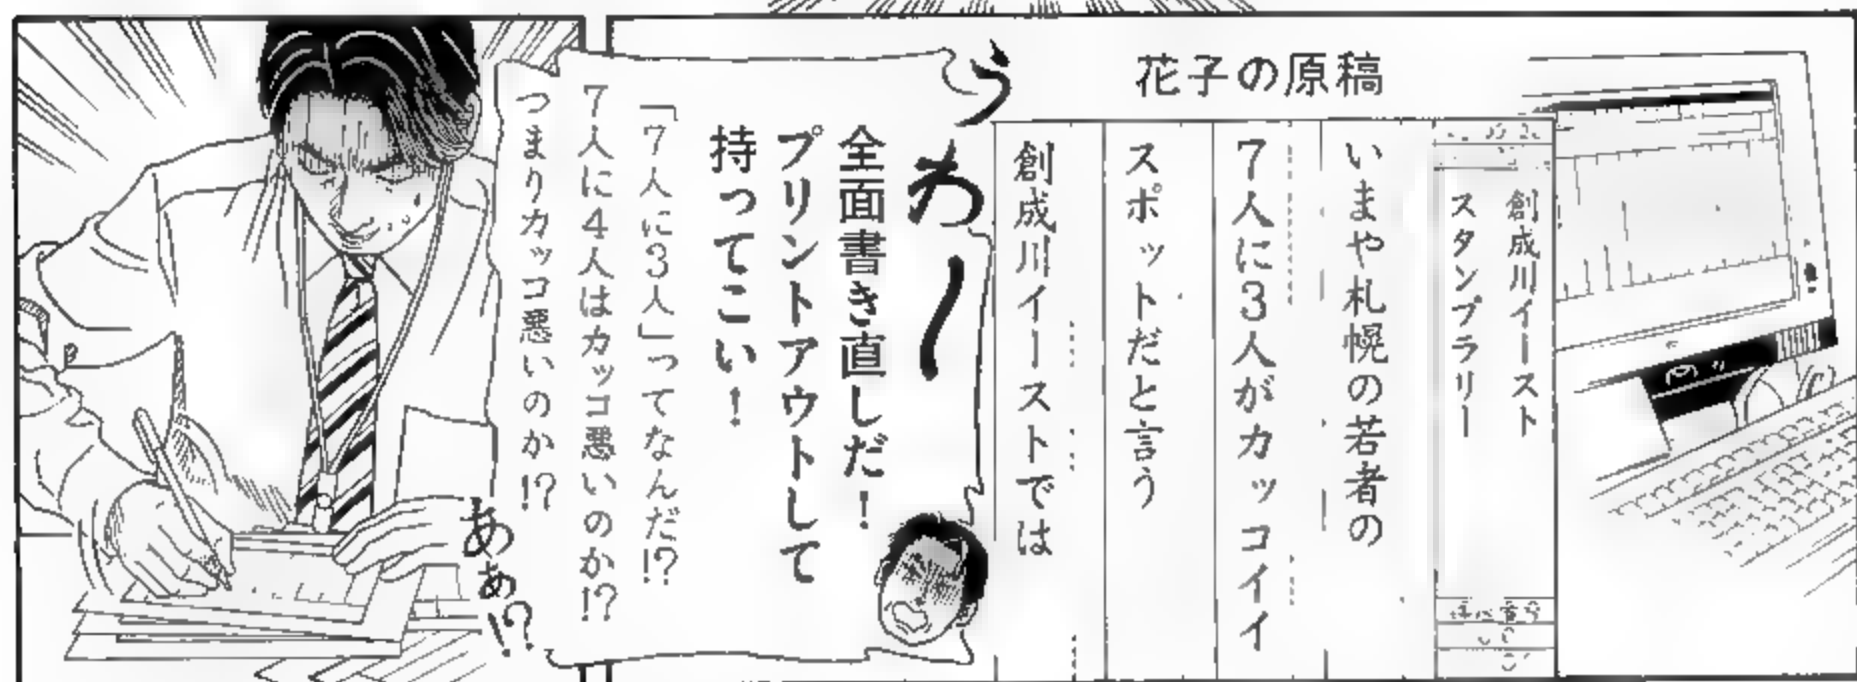 花子の原稿
創成川イースト
スタンプラリー
いまや札幌の若者の
7人に3人がカッコイイ
スポットだと言う
創成川イーストでは
うわー
全面書き直しだ!
プリントアウトして
持ってこい!
「7人に3人」ってなんだ!?
7人に4人はカッコ悪いのか!?
つまりカッコ悪いのか!?
あぁ!?